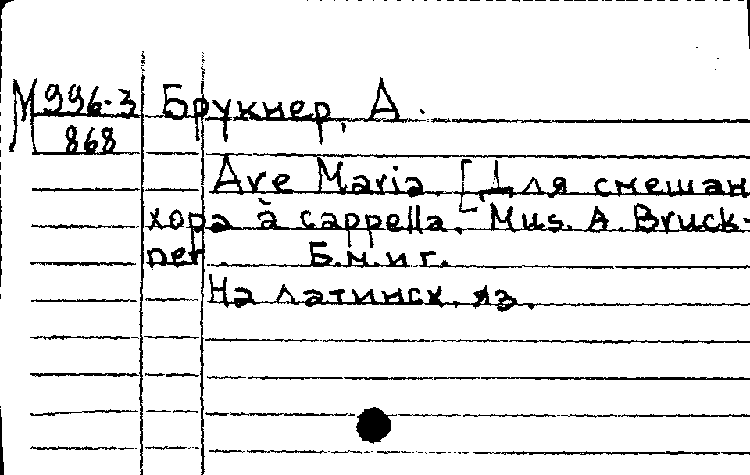 М 996-3
868
Брукнер, А.
Ave Maria. [Для смешан
хора à cappella. Mus. A. Bruck-
ner. Б.м. и г.
На латинск. яз.